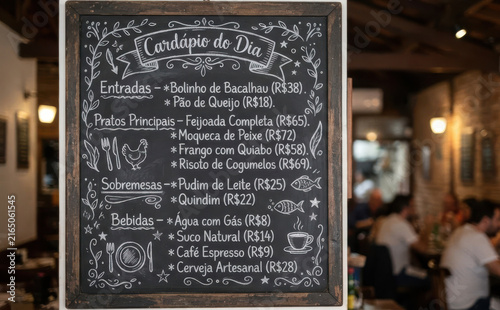 Cardápio do Dia
Entradas – * Bolinho de Bacalhau (R$38).
* Pão de Queijo (R$18).
Pratos Principais – * Feijoada Completa (R$65).
* Moqueca de Peixe (R$72)
* Frango com Quiabo (R$58).
* Risoto de Cogumelos (R$69).
Sobremesas – * Pudim de Leite (R$25)
* Quindim (R$22)
Bebidas – * Água com Gás (R$8)
* Suco Natural (R$14)
* Café Espresso (R$9)
* Cerveja Artesanal (R$28)
Adobe Stock | #2165061545